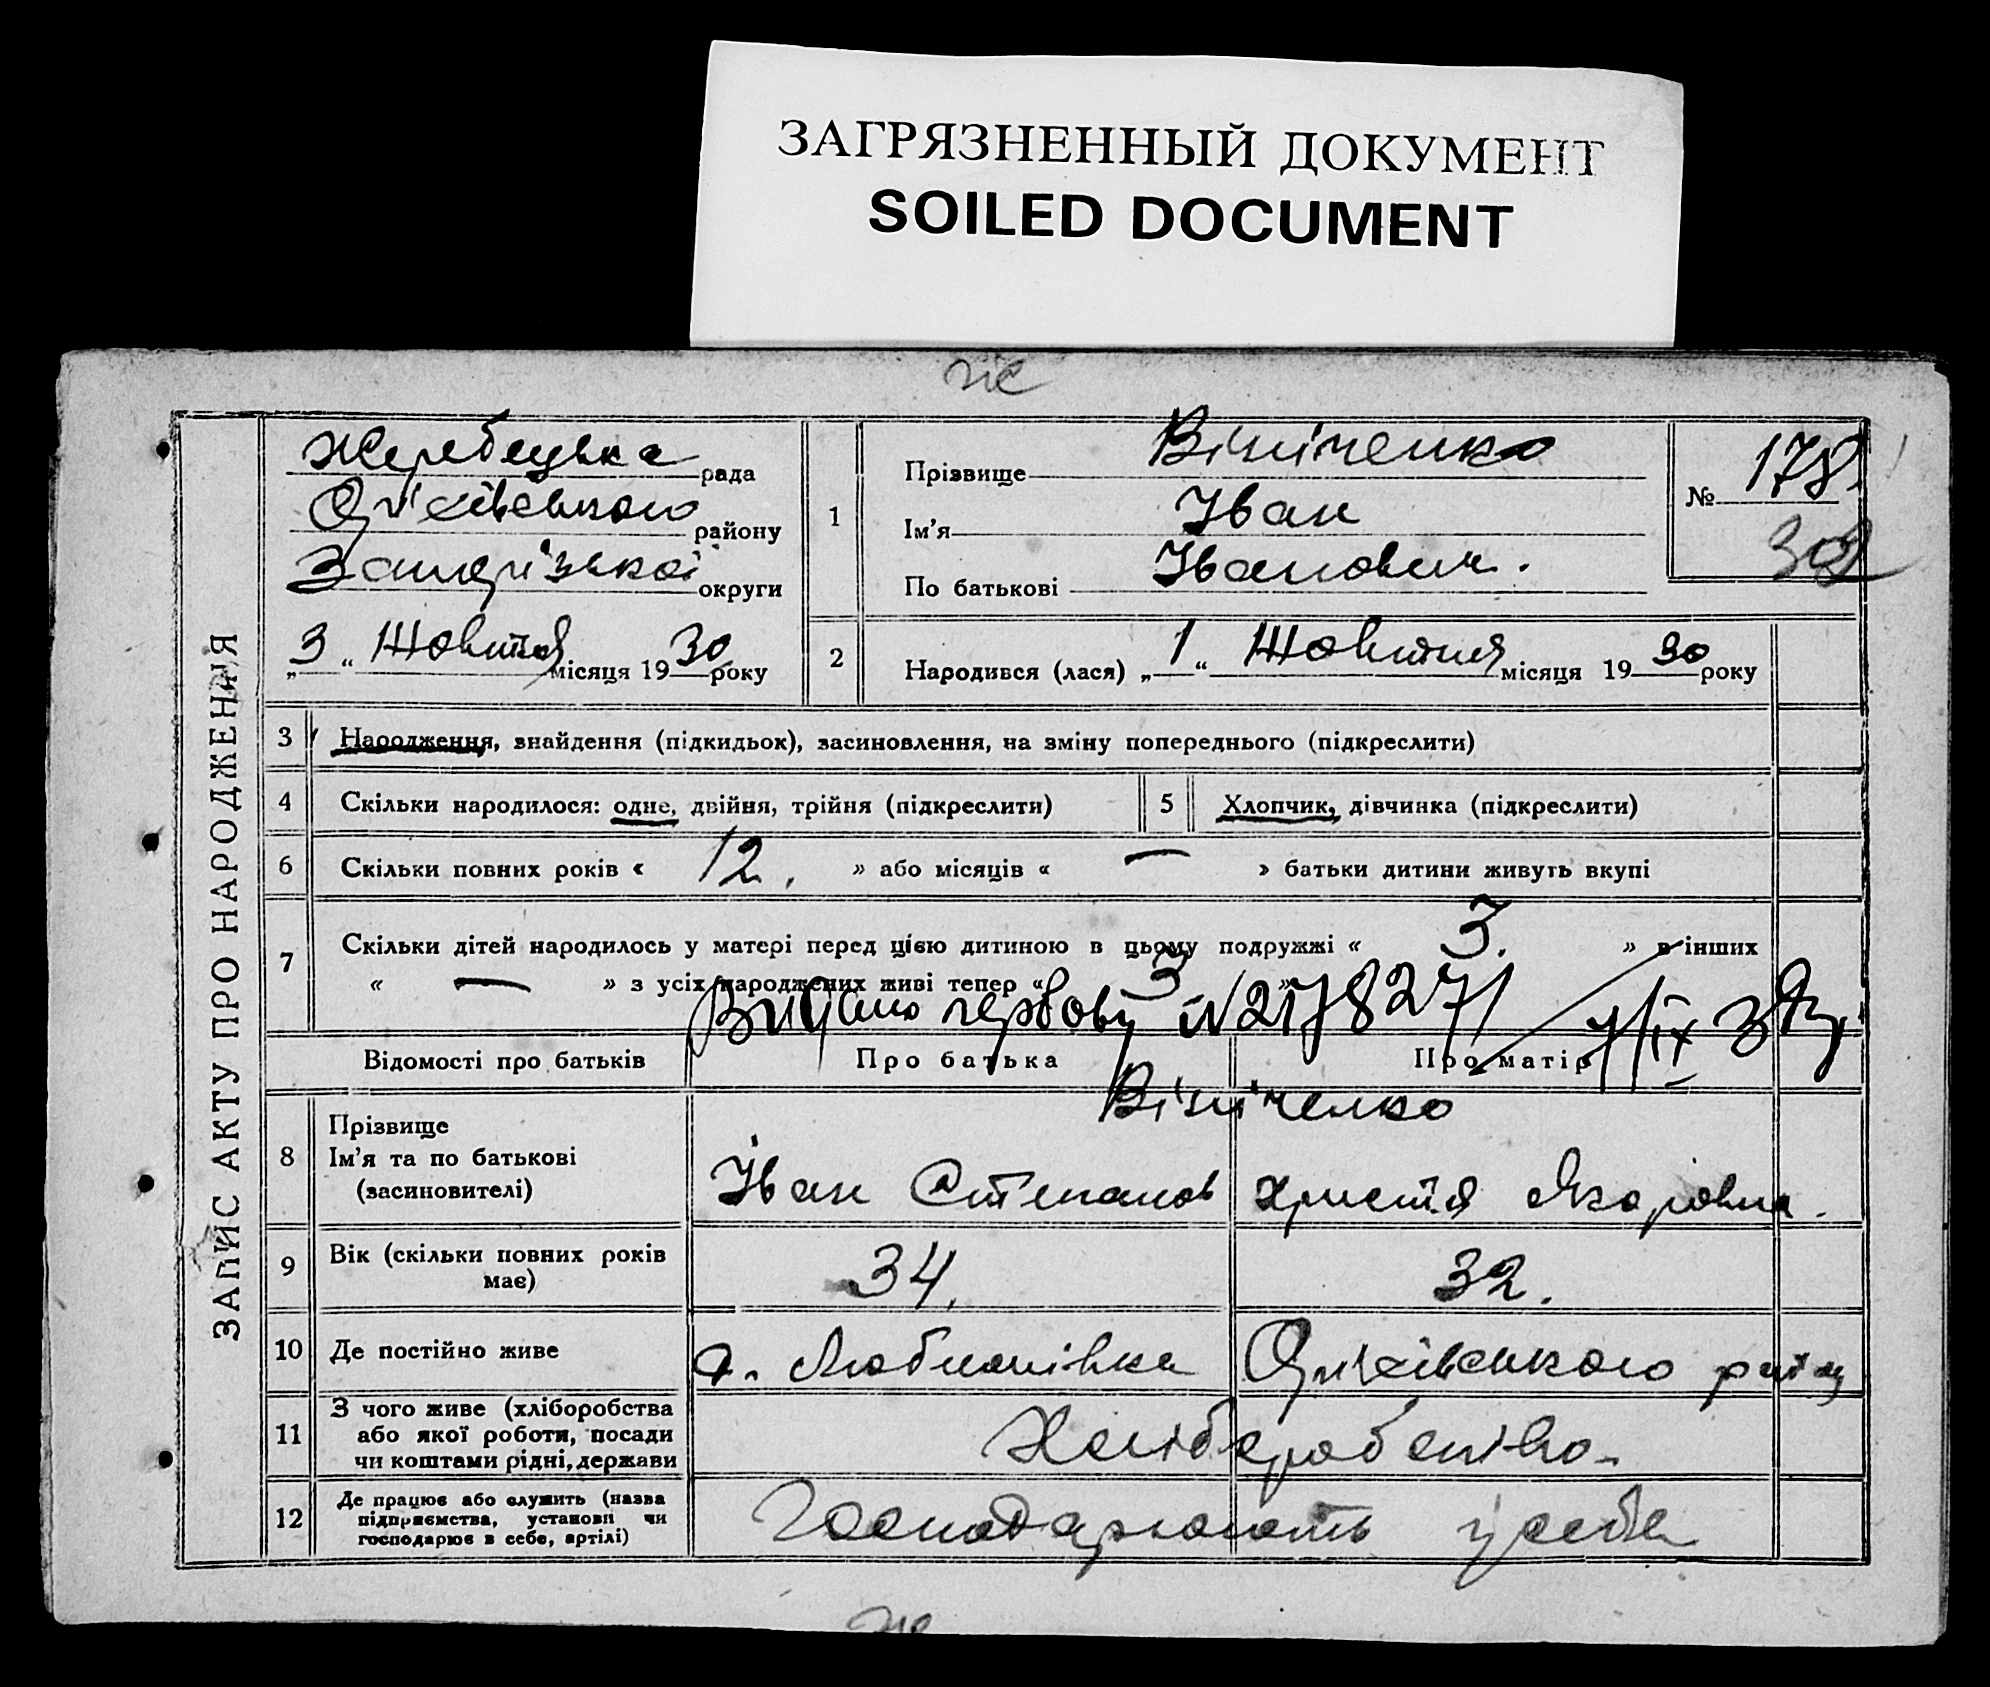 ЗАГРЯЗНЕННЫЙ ДОКУМЕНТ
SOILED DOCUMENT
ЗАПИС АКТУ ПРО НАРОДЖЕННЯ
Жеребецька рада
Оріхівського району
Запорізької округи
„3“ Жовтня місяця 1930 року
1
Прізвище Вініченко
Ім'я Іван
По батькові Іванович.
№ 178
302
2
Народився (лася) „1“ Жовтня місяця 1930 року
3 Народження, знайдення (підкидьок), засиновлення, на зміну попереднього (підкреслити)
4 Скільки народилося: одне, двійня, трійня (підкреслити)
5 Хлопчик, дівчинка (підкреслити)
6 Скільки повних років « 12. » або місяців « — » батьки дитини живуть вкупі
7 Скільки дітей народилось у матері перед цією дитиною в цьому подружжі « 3. » в інших
« — » з усіх народжених живі тепер « 3 »
Видано гербову №2178271
Відомості про батьків Про батька Про матір
Вініченко
8 Прізвище
Ім'я та по батькові
(засиновителі)
Іван Степанов Христя Якорівна.
9 Вік (скільки повних років
має)
34. 32.
10 Де постійно живе с. Любимівка Оріхівського району
11 З чого живе (хліборобства
або якої роботи, посади
чи коштами рідні, держави
Хліборобство.
12 Де працює або служить (назва
підприємства, установи чи
господарює в себе, артілі)
Господарюють у себе